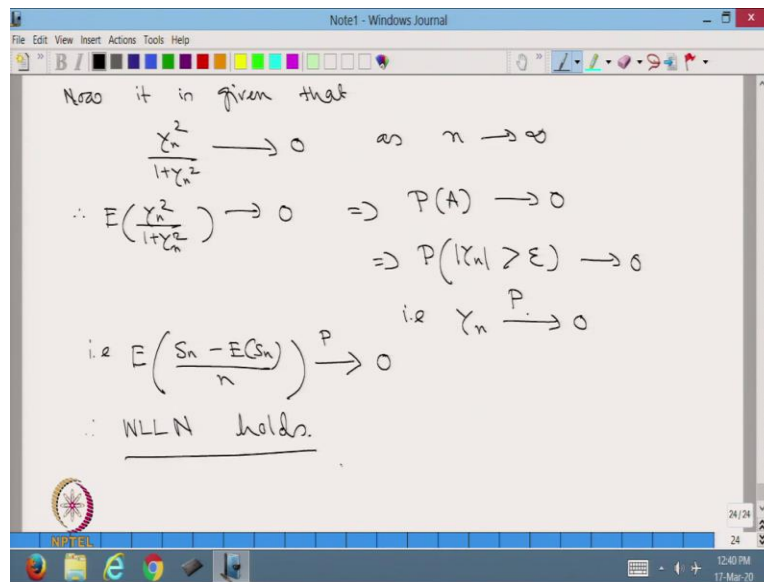 Note1 - Windows Journal
File Edit View Insert Actions Tools Help
B I
Now it in given that
Yn²/(1+Yn²) → 0 as n → ∞
∴ E(Yn²/(1+Yn²)) → 0 => P(A) → 0
=> P(|Yn| ≥ ε) → 0
i.e Yn →ᴾ 0
i.e E((Sn - E(Sn))/n) →ᴾ 0
∴ WLLN holds.
NPTEL
24/24
24
12:40 PM
17-Mar-20